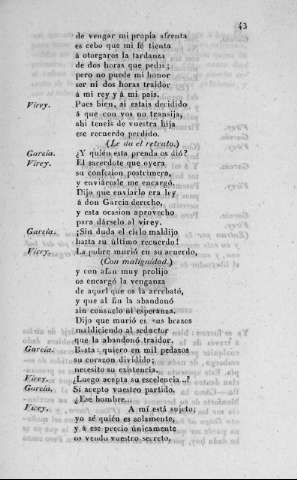 43
de vengar mi propia afrenta
es cebo que mi fé tienta
á otorgaros la tardanza
de dos horas que pedis;
pero no puede mi honor
ser ni dos horas traidor
á mi rey y á mi pais.
Virey. Pues bien, si estais decidido
á que con vos no transija,
ahi teneis de vuestra hija
ese recuerdo perdido.
(Le da el retrato.)
García. ¿Y quién esta prenda os dió?
Virey. El sacerdote que oyera
su confesion postrimera,
y enviárosle me encargó.
Dijo que enviarlo era ley
á don García derecho,
y esta ocasion aprovecho
para dárselo al virey.
García. ¡Sin duda el cielo maldijo
hasta su último recuerdo!
Virey. La pobre murió en su acuerdo,
(Con malignidad.)
y con afan muy prolijo
os encargó la venganza
de aquel que os la arrebató,
y que al fin la abandonó
sin consuelo ni esperanza.
Dijo que murió en sus brazos
maldiciendo al seductor
que la abandonó traidor.
García. Basta: quiero en mil pedazos
su corazon dividido;
necesito su existencia.
Virey. ¿Luego acepta su escelencia..?
García. Sí acepto vuestro partido.
¿Ese hombre...
Virey. A mí está sujeto;
yo sé quién es solamente,
y á ese precio únicamente
os vendo vuestro secreto.